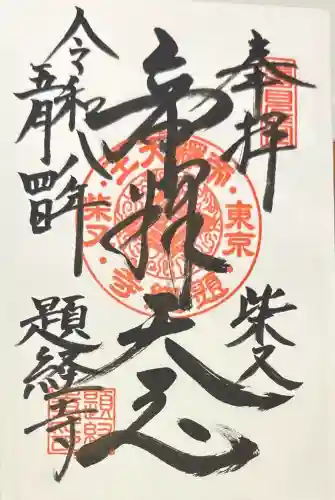 奉拝
柴又
帝釈天王
令和八年
五月四日
題経寺
帝釋天王
東京
題経寺
柴又